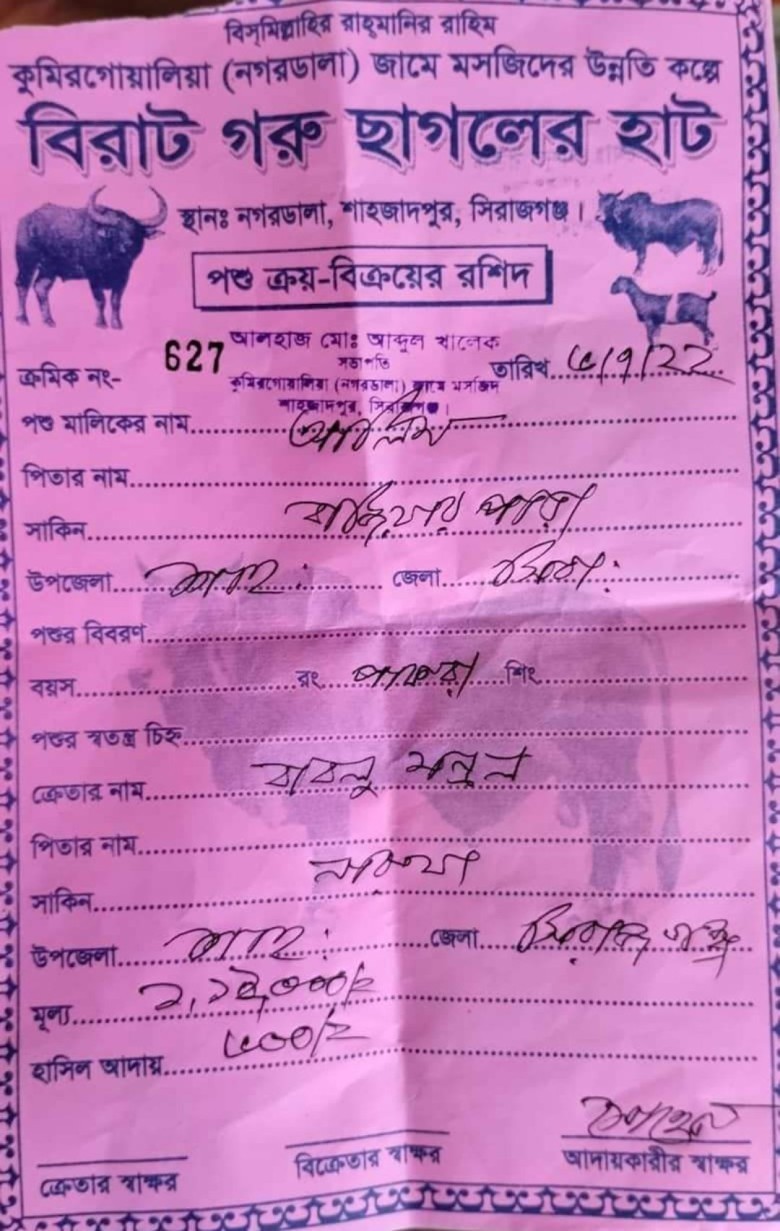 বিস্‌মিল্লাহির রাহ্‌মানির রাহিম
কুমিরগোয়ালিয়া (নগরডালা) জামে মসজিদের উন্নতি কল্পে
বিরাট গরু ছাগলের হাট
স্থানঃ নগরডালা, শাহজাদপুর, সিরাজগঞ্জ।
পশু ক্রয়-বিক্রয়ের রশিদ
আলহাজ মোঃ আব্দুল খালেক
সভাপতি
কুমিরগোয়ালিয়া (নগরডালা) জামে মসজিদ
শাহজাদপুর, সিরাজগঞ্জ।
ক্রমিক নং- 627 তারিখ
পশু মালিকের নাম
পিতার নাম
সাকিন
উপজেলা শাহ: জেলা সিরা:
পশুর বিবরণ
বয়স রং পাকরা শিং
পশুর স্বতন্ত্র চিহ্ন
ক্রেতার নাম বাবলু মন্ডল
পিতার নাম
সাকিন
উপজেলা শাহ: জেলা সিরাজগঞ্জ
মূল্য
হাসিল আদায়
ক্রেতার স্বাক্ষর বিক্রেতার স্বাক্ষর আদায়কারীর স্বাক্ষর